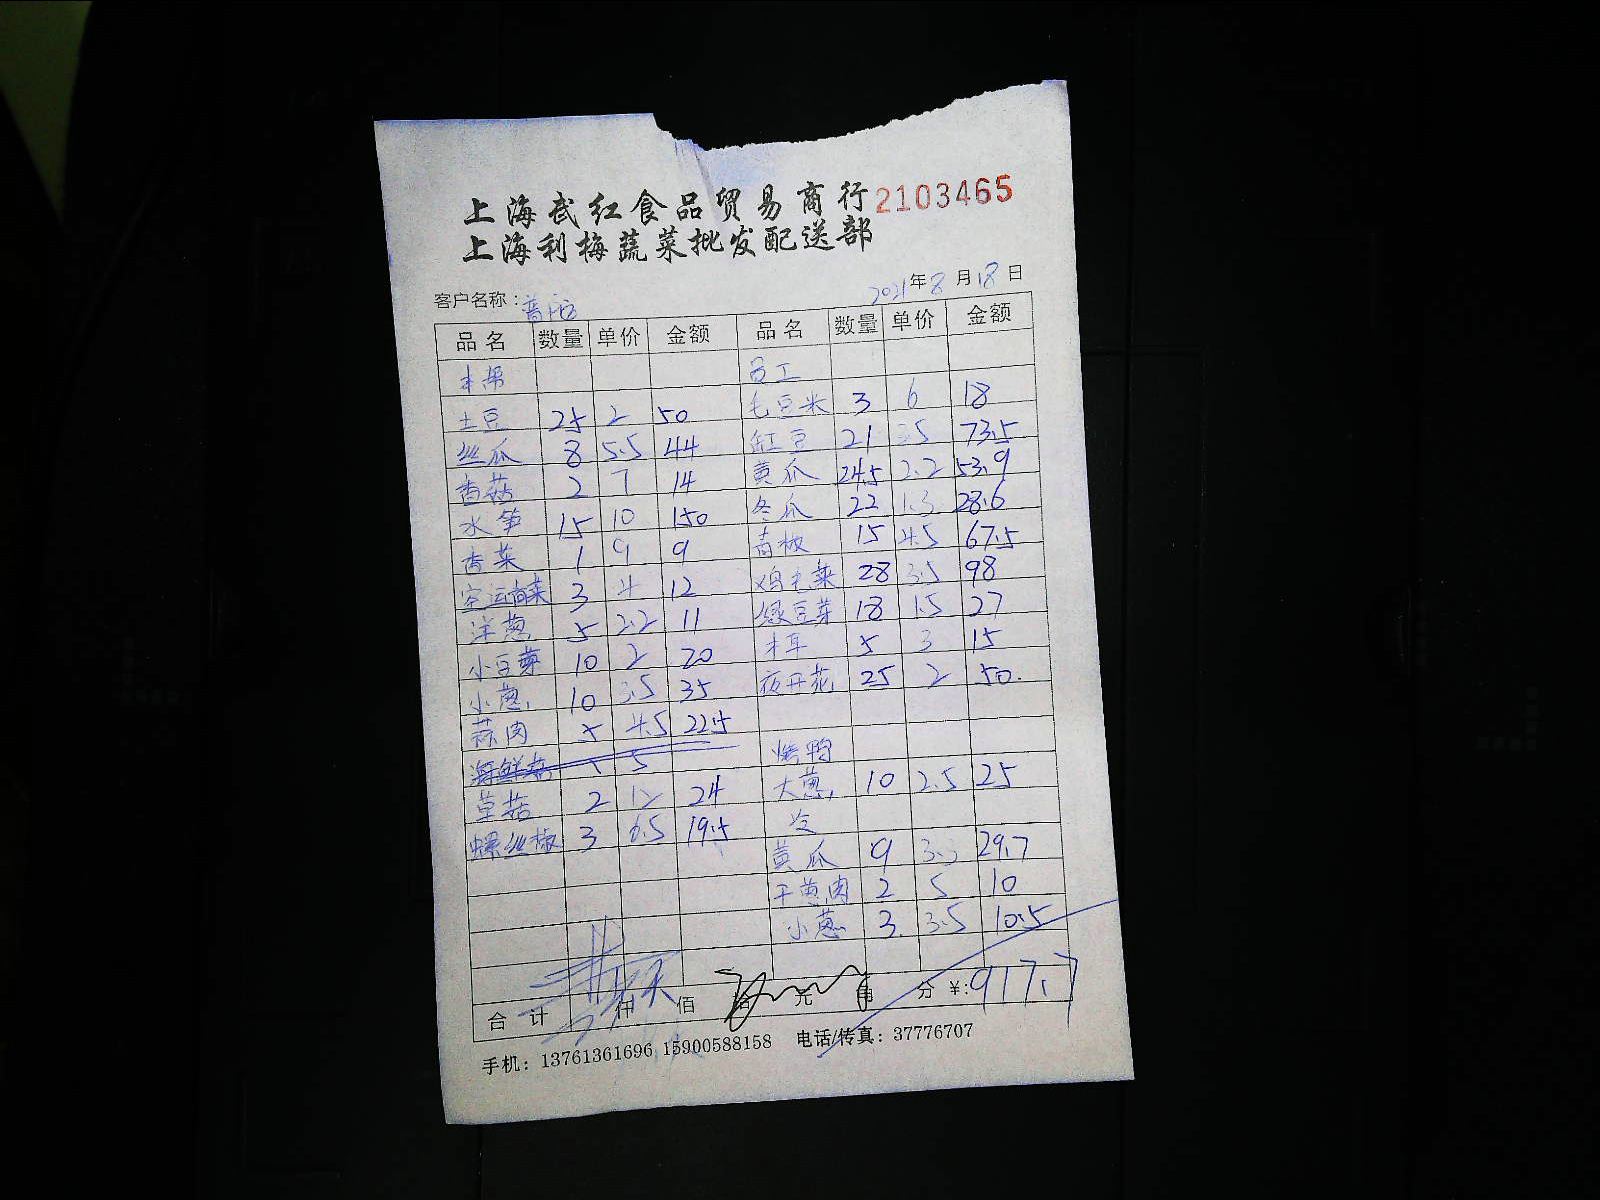 上海武红食品贸易商行 2103465
上海利梅蔬菜批发配送部
客户名称： 2021年8月18日
品名 数量 单价 金额 品名 数量 单价 金额
本帮 员工
土豆 25 2 50 毛豆米 3 6 18
丝瓜 8 5.5 44 缸豆 21 3.5 73.5
香菇 2 7 14 黄瓜 24.5 2.2 53.9
水笋 15 10 150 冬瓜 22 1.3 28.6
香菜 1 9 9 青椒 15 4.5 67.5
空运香菜 3 4 12 鸡毛菜 28 3.5 98
洋葱 5 2.2 11 绿豆芽 18 1.5 27
小豆芽 10 2 20 木耳 5 3 15
小葱 10 3.5 35 夜开花 25 2 50.
蒜肉 5 4.5 22.5
海鲜菇 5 烤鸭
草菇 2 12 24 大葱 10 2.5 25
螺丝椒 3 6.5 19.5 冷
黄瓜 9 3.3 29.7
干葱肉 2 5 10
小葱 3 3.5 10.5
合计 仟 佰 拾 元 角 分 ¥:917.7
手机：13761361696 15900588158 电话/传真：37776707